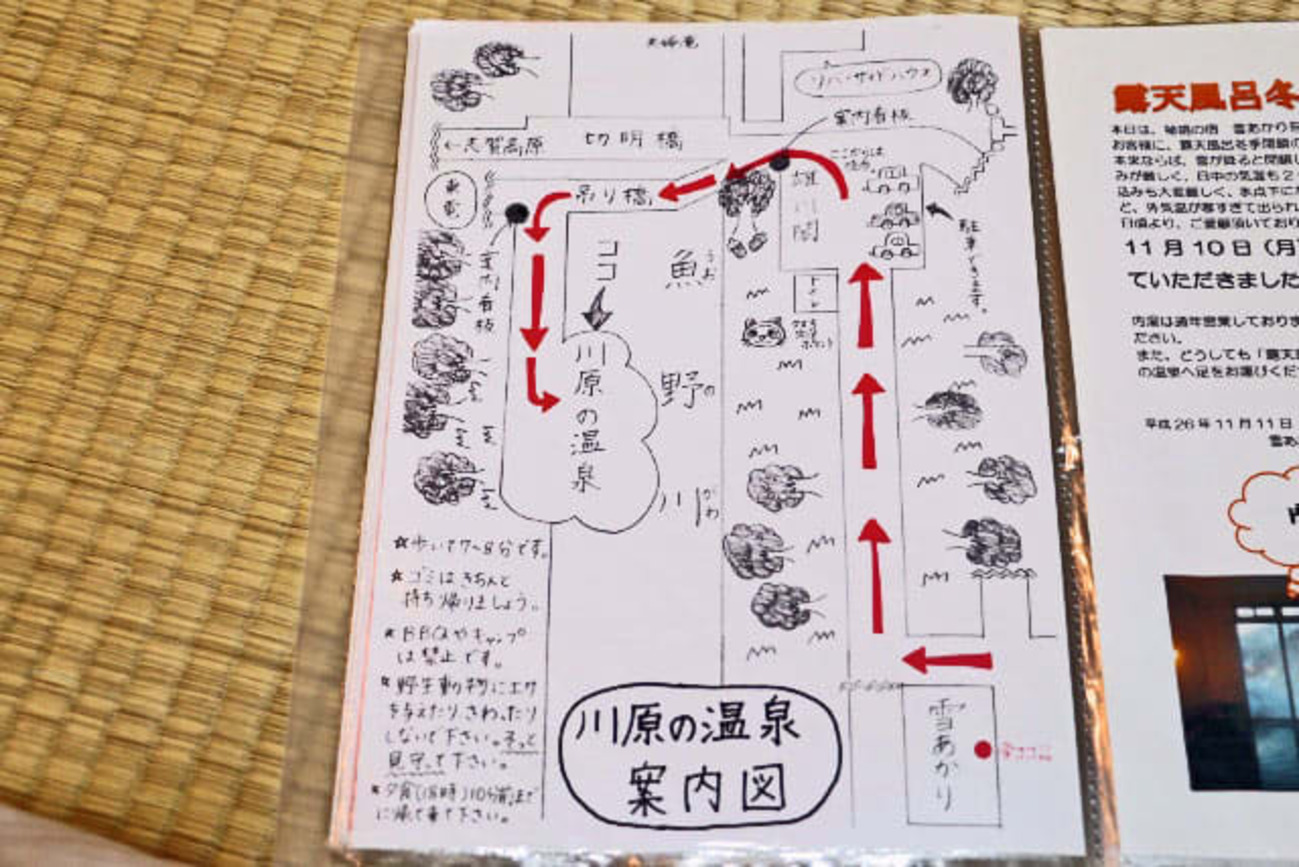 リバーサイドハウス
案内看板
←志賀高原
切明橋
ここからは
東電
吊り橋
雄川閣
駐車できます。
案内看板
ココ
魚うお
トイレ
川原の温泉
野の
川がわ
☆歩いて7～8分です。
☆ゴミはきちんと
持ち帰りましょう。
★BBQやキャンプ
は禁止です。
★野生動物にエサ
を与えたりさわったり
しないで下さい。そっと
見守って下さい。
★夕食(18時)10分前まで
に帰って来て下さい。
川原の温泉
案内図
雪あかり
露天風呂冬
本日は、秘境の宿 雪あかり
お客様に、露天風呂冬季閉鎖の
本来ならば、雪が降ると閉鎖し
みが厳しく、日中の気温も2
込みも大変厳しく、氷点下に
と、外気温が寒すぎて出られ
日頃より、ご愛顧頂いており
11月10日(月)
ていただきました
内湯は通年営業しておりま
ださい。
また、どうしても「露天
の温泉へ足をお運びくだ
平成26年11月11日
雪あ